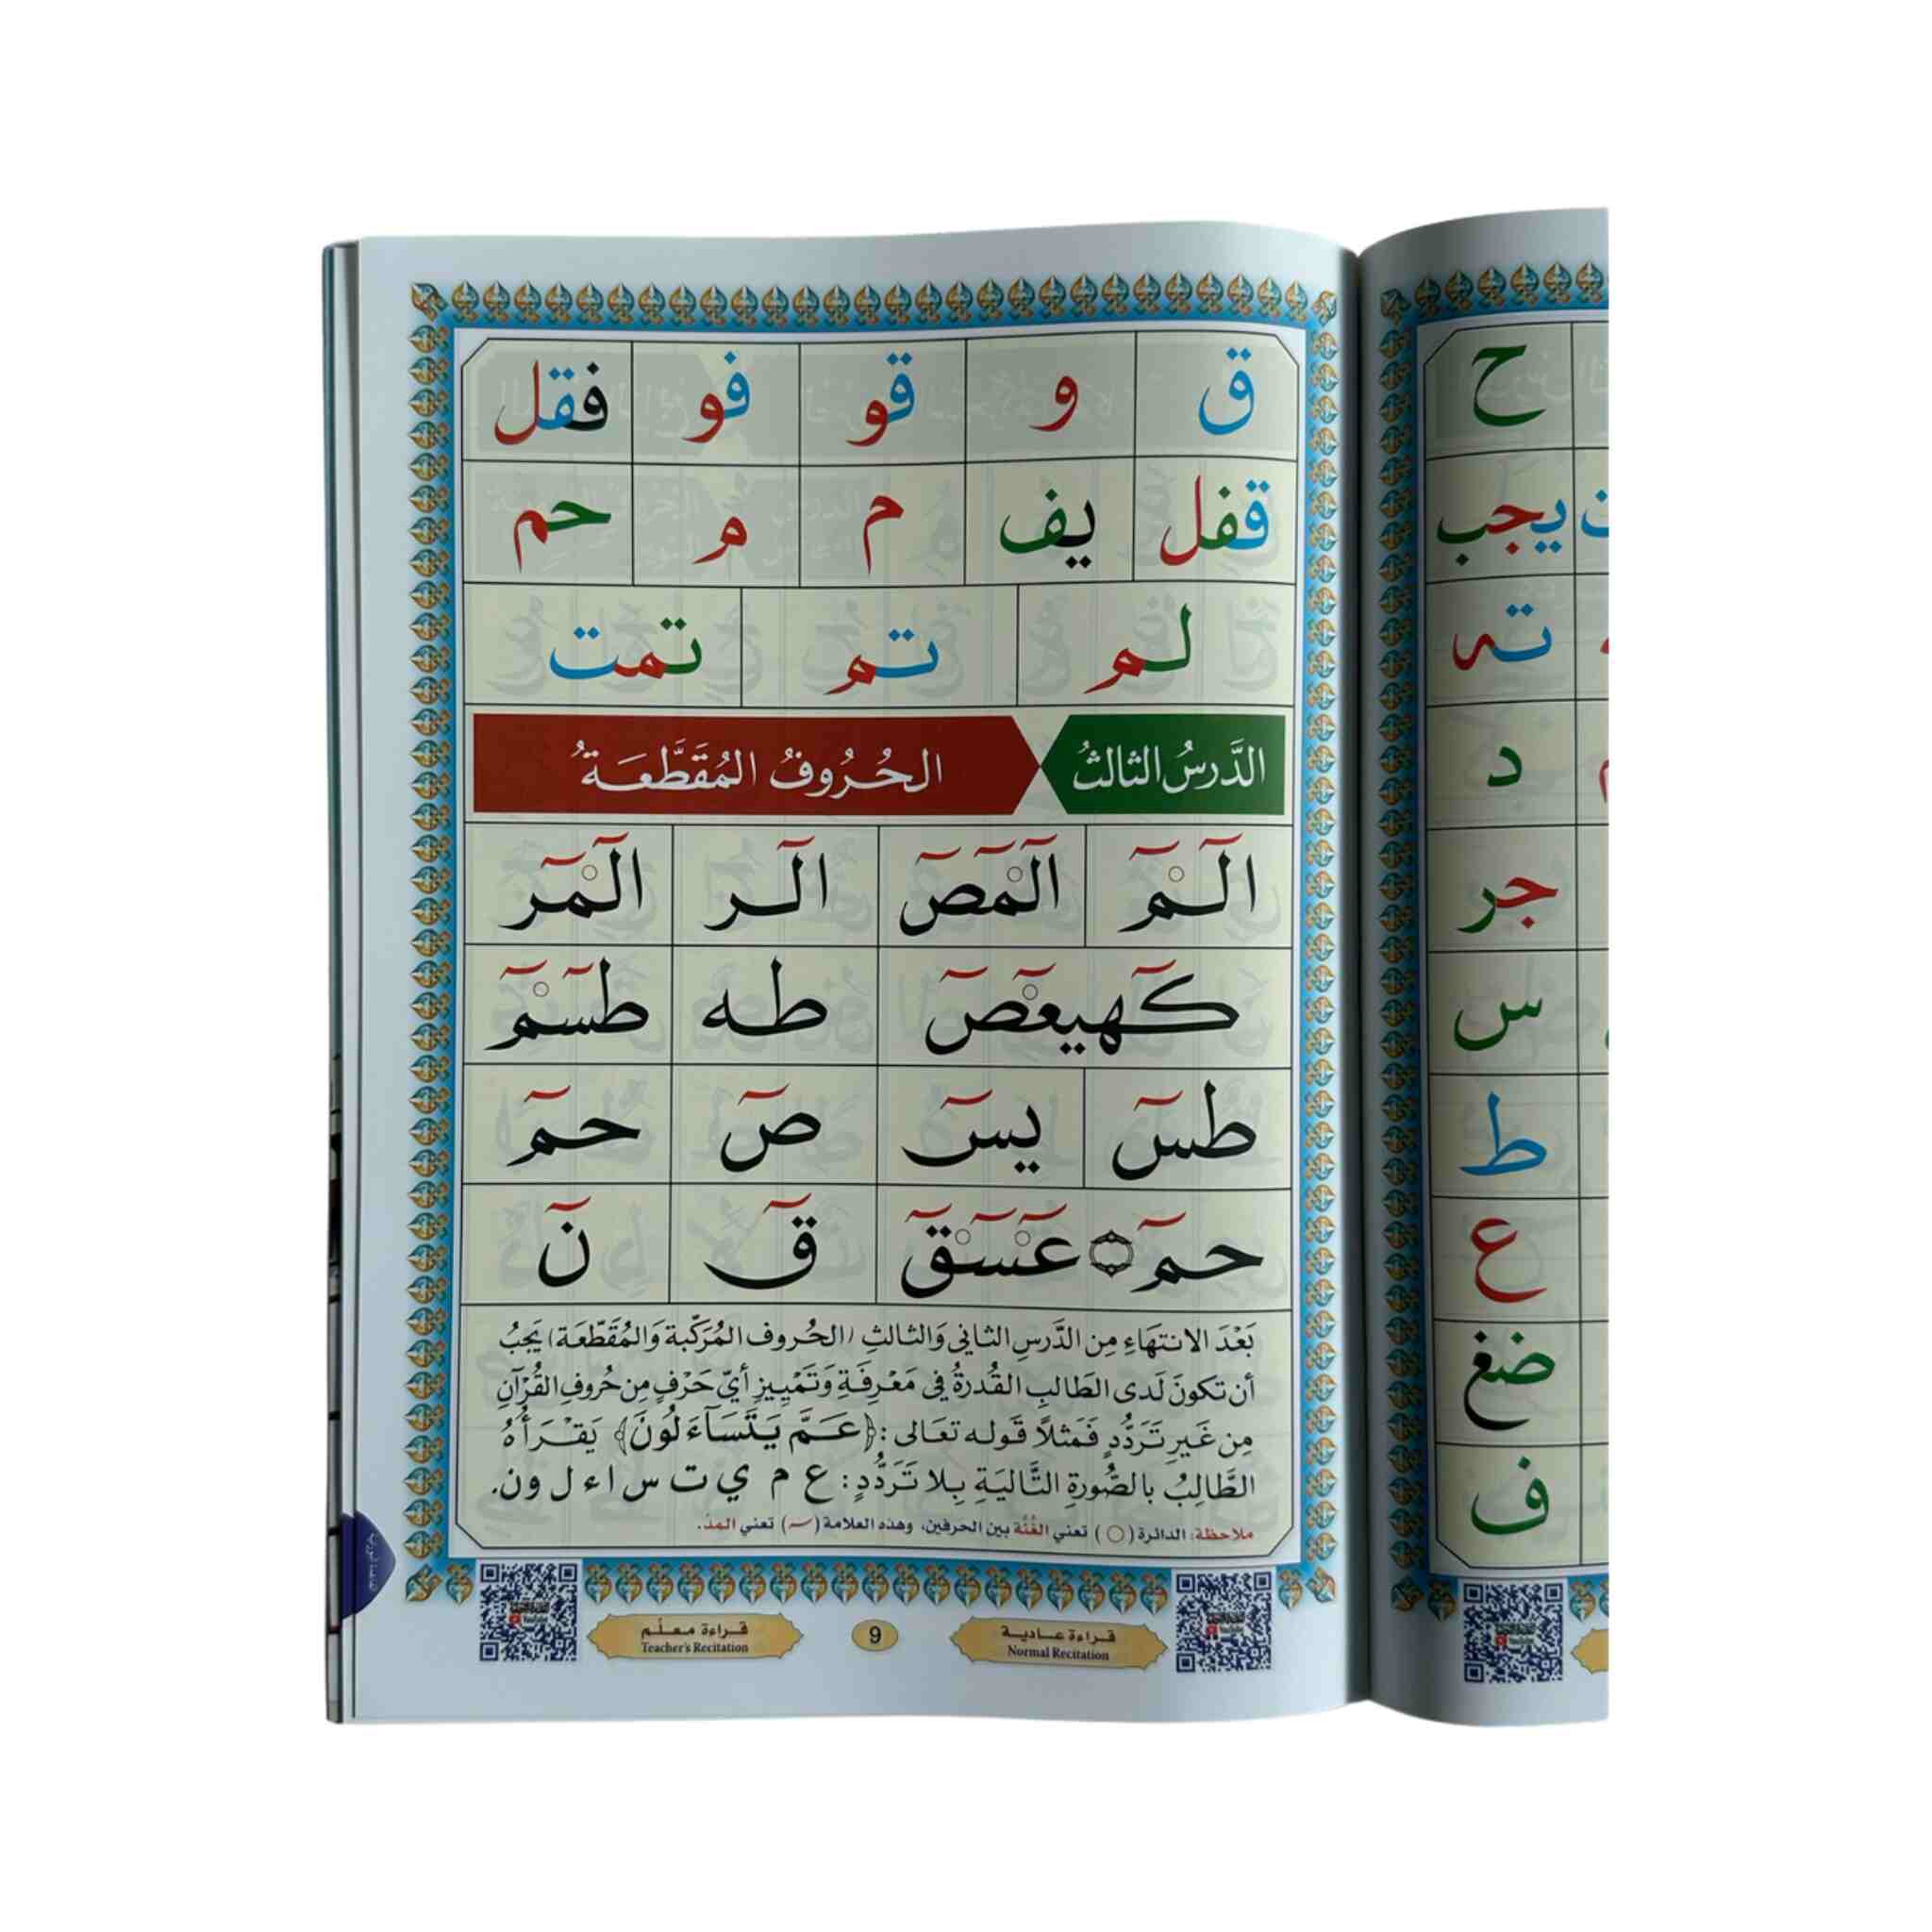 ق و قو فو فقل
قفل يف م م حم
لم تم تمت
الدَّرسُ الثالثُ الحُرُوفُ المُقَطَّعَةُ
الٓمٓ الٓمٓصٓ الٓر الٓمٓر
كٓهيعٓصٓ طه طسٓمٓ
طسٓ يسٓ صٓ حمٓ
حمٓ ۝ عٓسٓقٓ قٓ نٓ
بَعْدَ الانتهَاءِ مِن الدَّرسِ الثاني وَالثالثِ (الحُروف المُرَكّبة وَالمُقَطّعَة) يَجبُ
أن تكونَ لَدى الطَالبِ القُدرةُ في مَعْرِفَةِ وَتَمْييزِ أيّ حَرْفٍ مِن حُروفِ القُرْآنِ
مِن غَيرِ تَرَدُّدٍ فَمَثلاً قَوله تعَالى: ﴿عَـمَّ يَتَسَآءَلُونَ﴾ يَقـْـرَأُهُ
الطَّالِبُ بالصُّورةِ التَّاليَةِ بِلا تَرَدُّدٍ: ع م ي ت س ا ء ل و ن.
ملاحظة: الدائرة (○) تعني الغُنَّة بين الحرفين، وهذه العلامة (ـٓ) تعني المدّ.
قراءة عادية
Normal Recitation
9
قراءة معلّم
Teacher's Recitation
ح
يجب
ته
د
جر
س
ط
ع
ضغ
ف